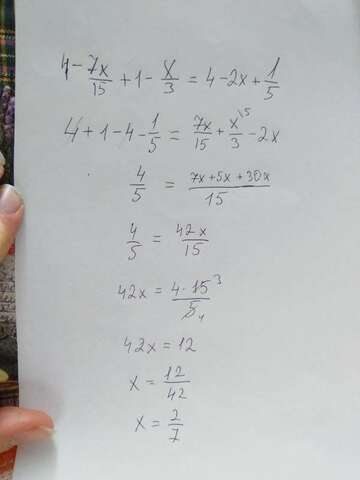 4 - 7x/15 + 1 - x/3 = 4 - 2x + 1/5
4 + 1 - 4 - 1/5 = 7x/15 + x/3 \15 - 2x
4/5 = 7x + 5x + 30x/15
4/5 = 42x/15
42x = 4 · 15 3/5 1
42x = 12
x = 12/42
x = 2/7